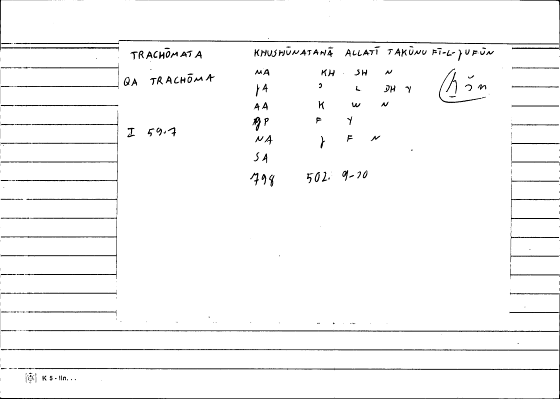 TRACHŌMATA KHUSHŪNATAHĀ ALLATĪ TAKŪNU FĪ-L-JUFŪN
QA TRACHŌMA
NA KH SH N
JA ʾ L DH Y
AA K W N
AP F Y
I 59.7
NA J F N
SA
798 502. 9-10
K 5 - lin...